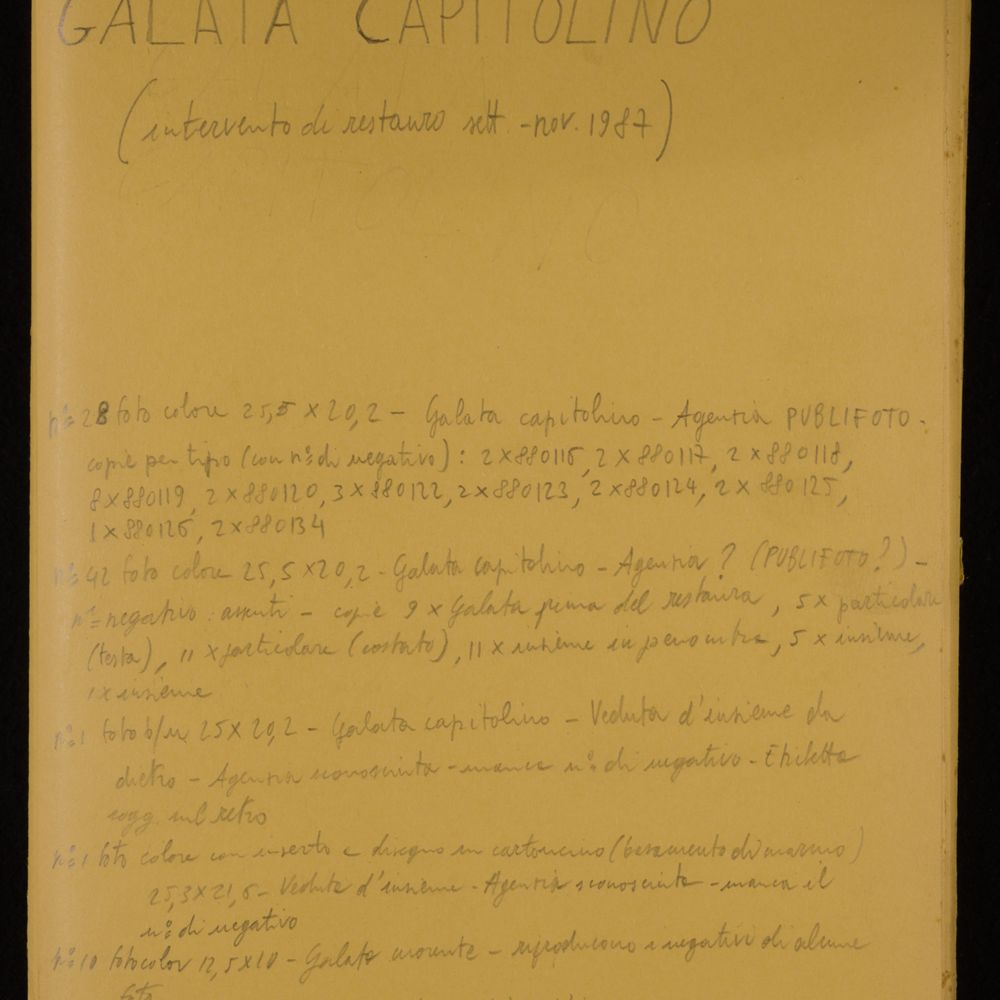 GALATA CAPITOLINO
(intervento di restauro sett. - nov. 1987)
n°= 28 foto colore 25,5 x 20,2 - Galata capitolino - Agenzia PUBLIFOTO -
copie per tipo (con n° di negativo): 2 x 880116, 2 x 880117, 2 x 880118,
8 x 880119, 2 x 880120, 3 x 880122, 2 x 880123, 2 x 880124, 2 x 880125,
1 x 880126, 2 x 880134
n°= 42 foto colore 25,5 x 20,2 - Galata capitolino - Agenzia ? (PUBLIFOTO?) -
n°= negativo: assenti - copie 9 x Galata prima del restauro, 5 x particolare
(testa), 11 x particolare (costato), 11 x insieme in penombra, 5 x insieme,
1 x insieme
n°= 1 foto b/n 25 x 20,2 - Galata capitolino - Veduta d'insieme da
dietro - Agenzia sconosciuta - manca n° di negativo - Etichetta
sogg. sul retro
n°= 1 foto colore con inserto e disegno in cartoncino (basamento di marmo)
25,3 x 21,6 - Veduta d'insieme - Agenzia sconosciuta - manca il
n° di negativo
n°= 10 fotocolor 12,5 x 10 - Galata morente - riproducono i negativi di alcune
foto